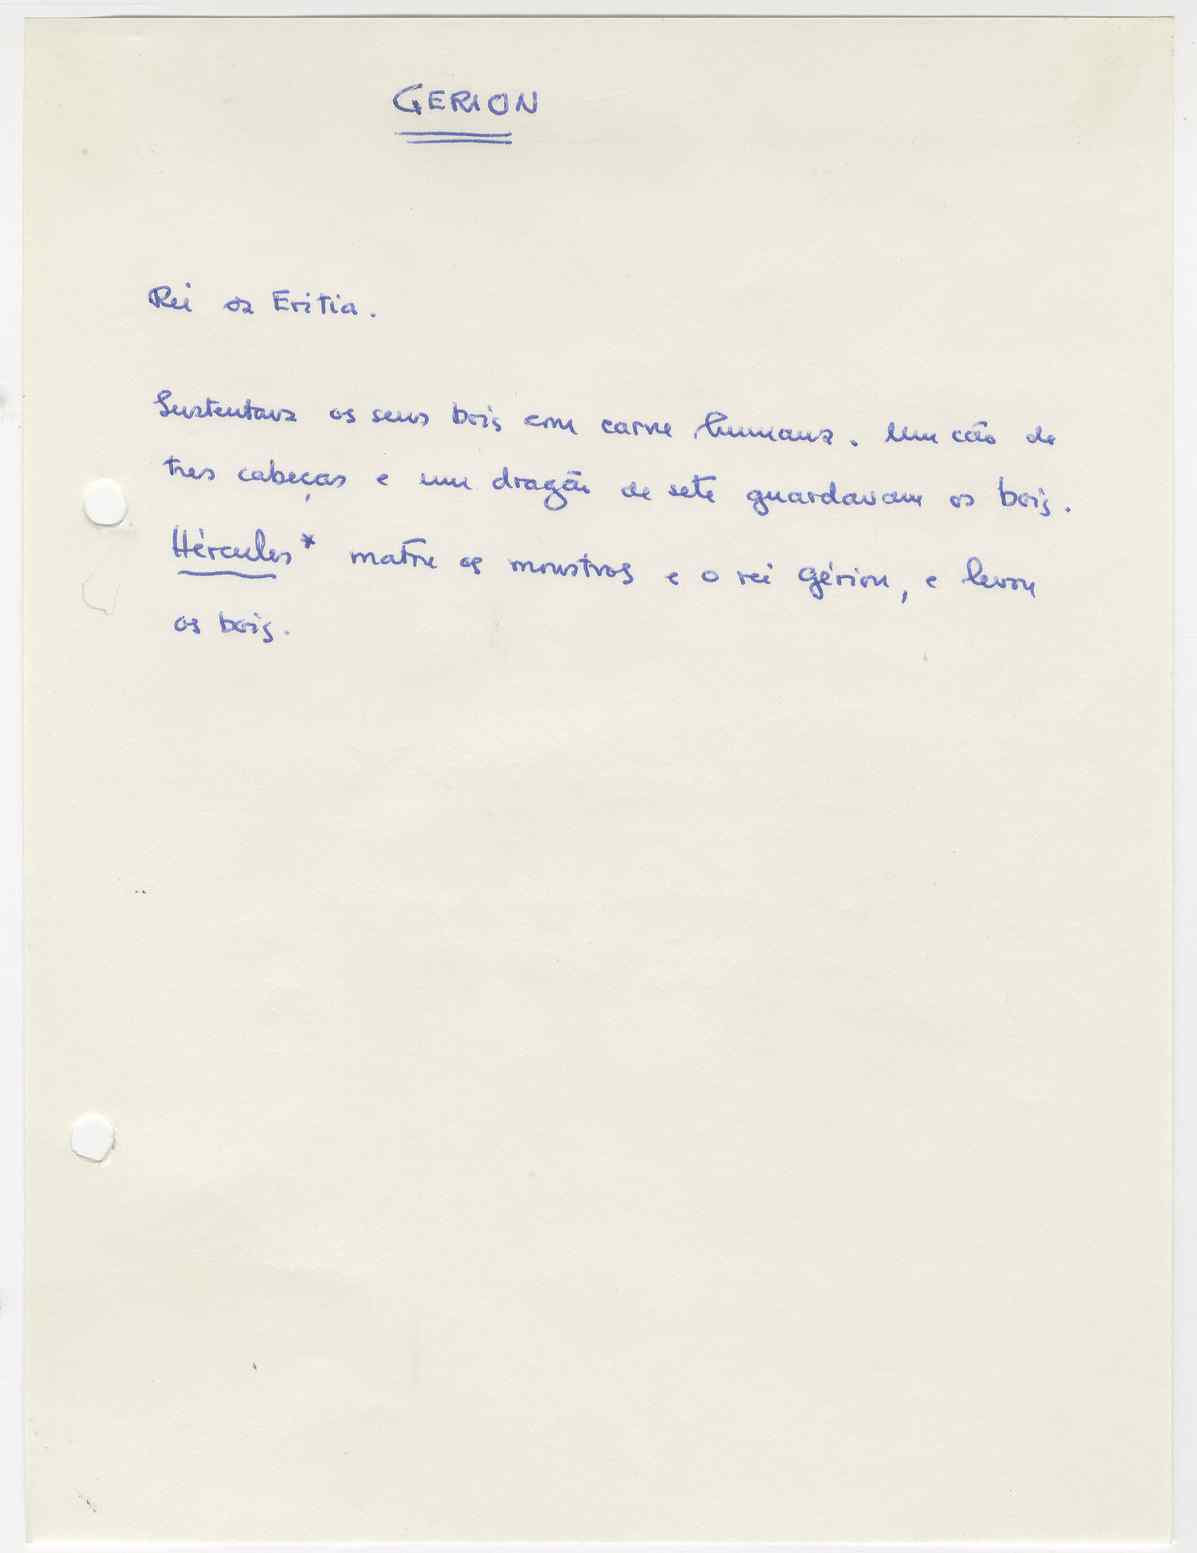 GERION
Rei da Eritia.
Sustentava os seus bois com carne humana. Um cão de
tres cabeças e um dragão de sete guardavam os bois.
Hércules* matou os monstros e o rei Gérion, e levou
os bois.